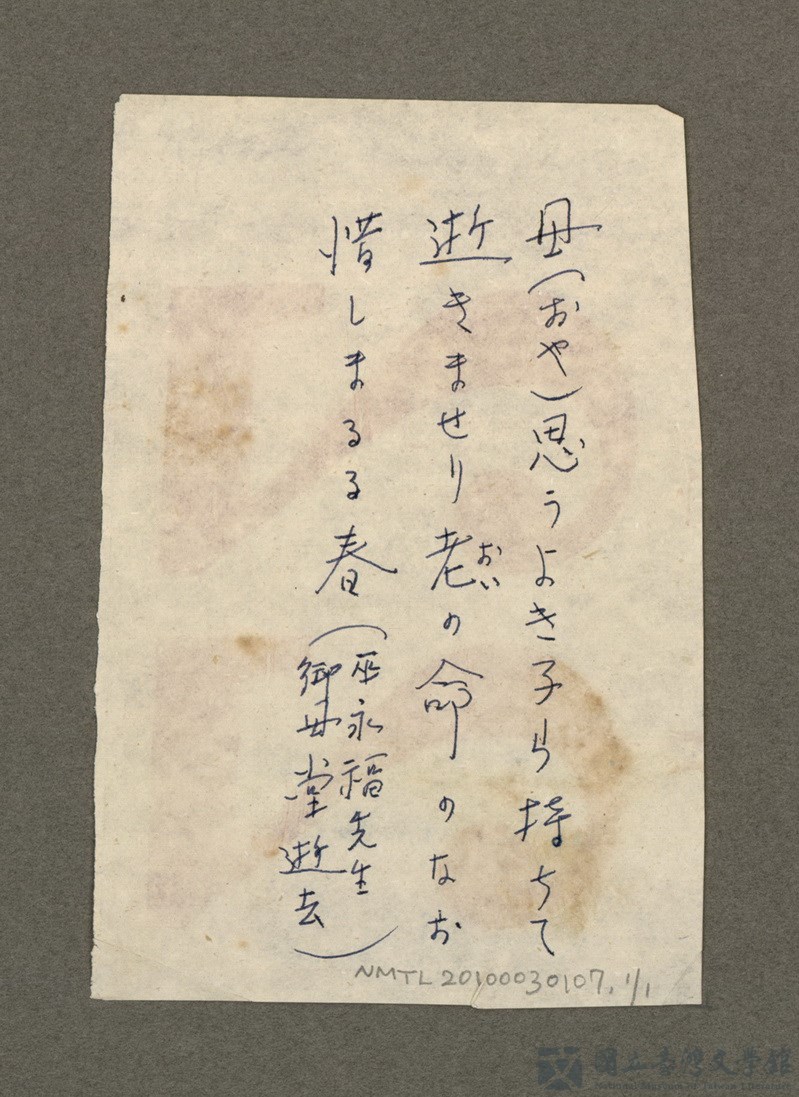 母(おや)思うよき子ら持ちて
逝きませり老おいの命のなお
惜しまるる春(巫永福先生
御母堂逝去)
NMTL 20100030107, 1/1
國立臺灣文學館
National Museum of Taiwan Literature